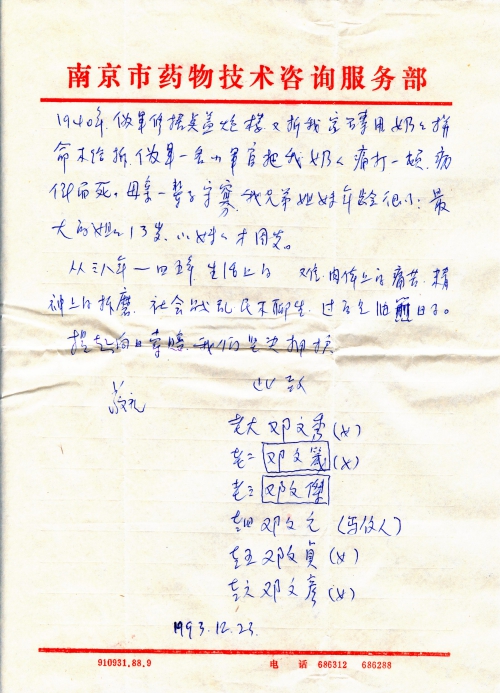 南京市药物技术咨询服务部
1940年, 伪军修据点盖炮楼又拆我家 事用奶々拼
命不给拆, 伪军一名小军官把我奶々痛打一顿, 病
倒而死。母亲一辈子守寡, 我兄弟姐妹年龄很小: 最
大的姐姐13岁, 小妹々才周岁。
从三八年一四五年生活上的 难, 肉体上的痛苦, 精
神上的折磨, 社会战乱民不聊生, 过着 日子。
提起向日索赔, 我们坚决拥护
此致
敬礼
老大 邓文秀 (女)
老二 邓文箴 (女)
老三 邓文傑
老四 邓文元 (写信人)
老五 邓文贞 (女)
老六 邓文彦 (女)
1993.12.23.
910931.88.9 电 话 686312 686288